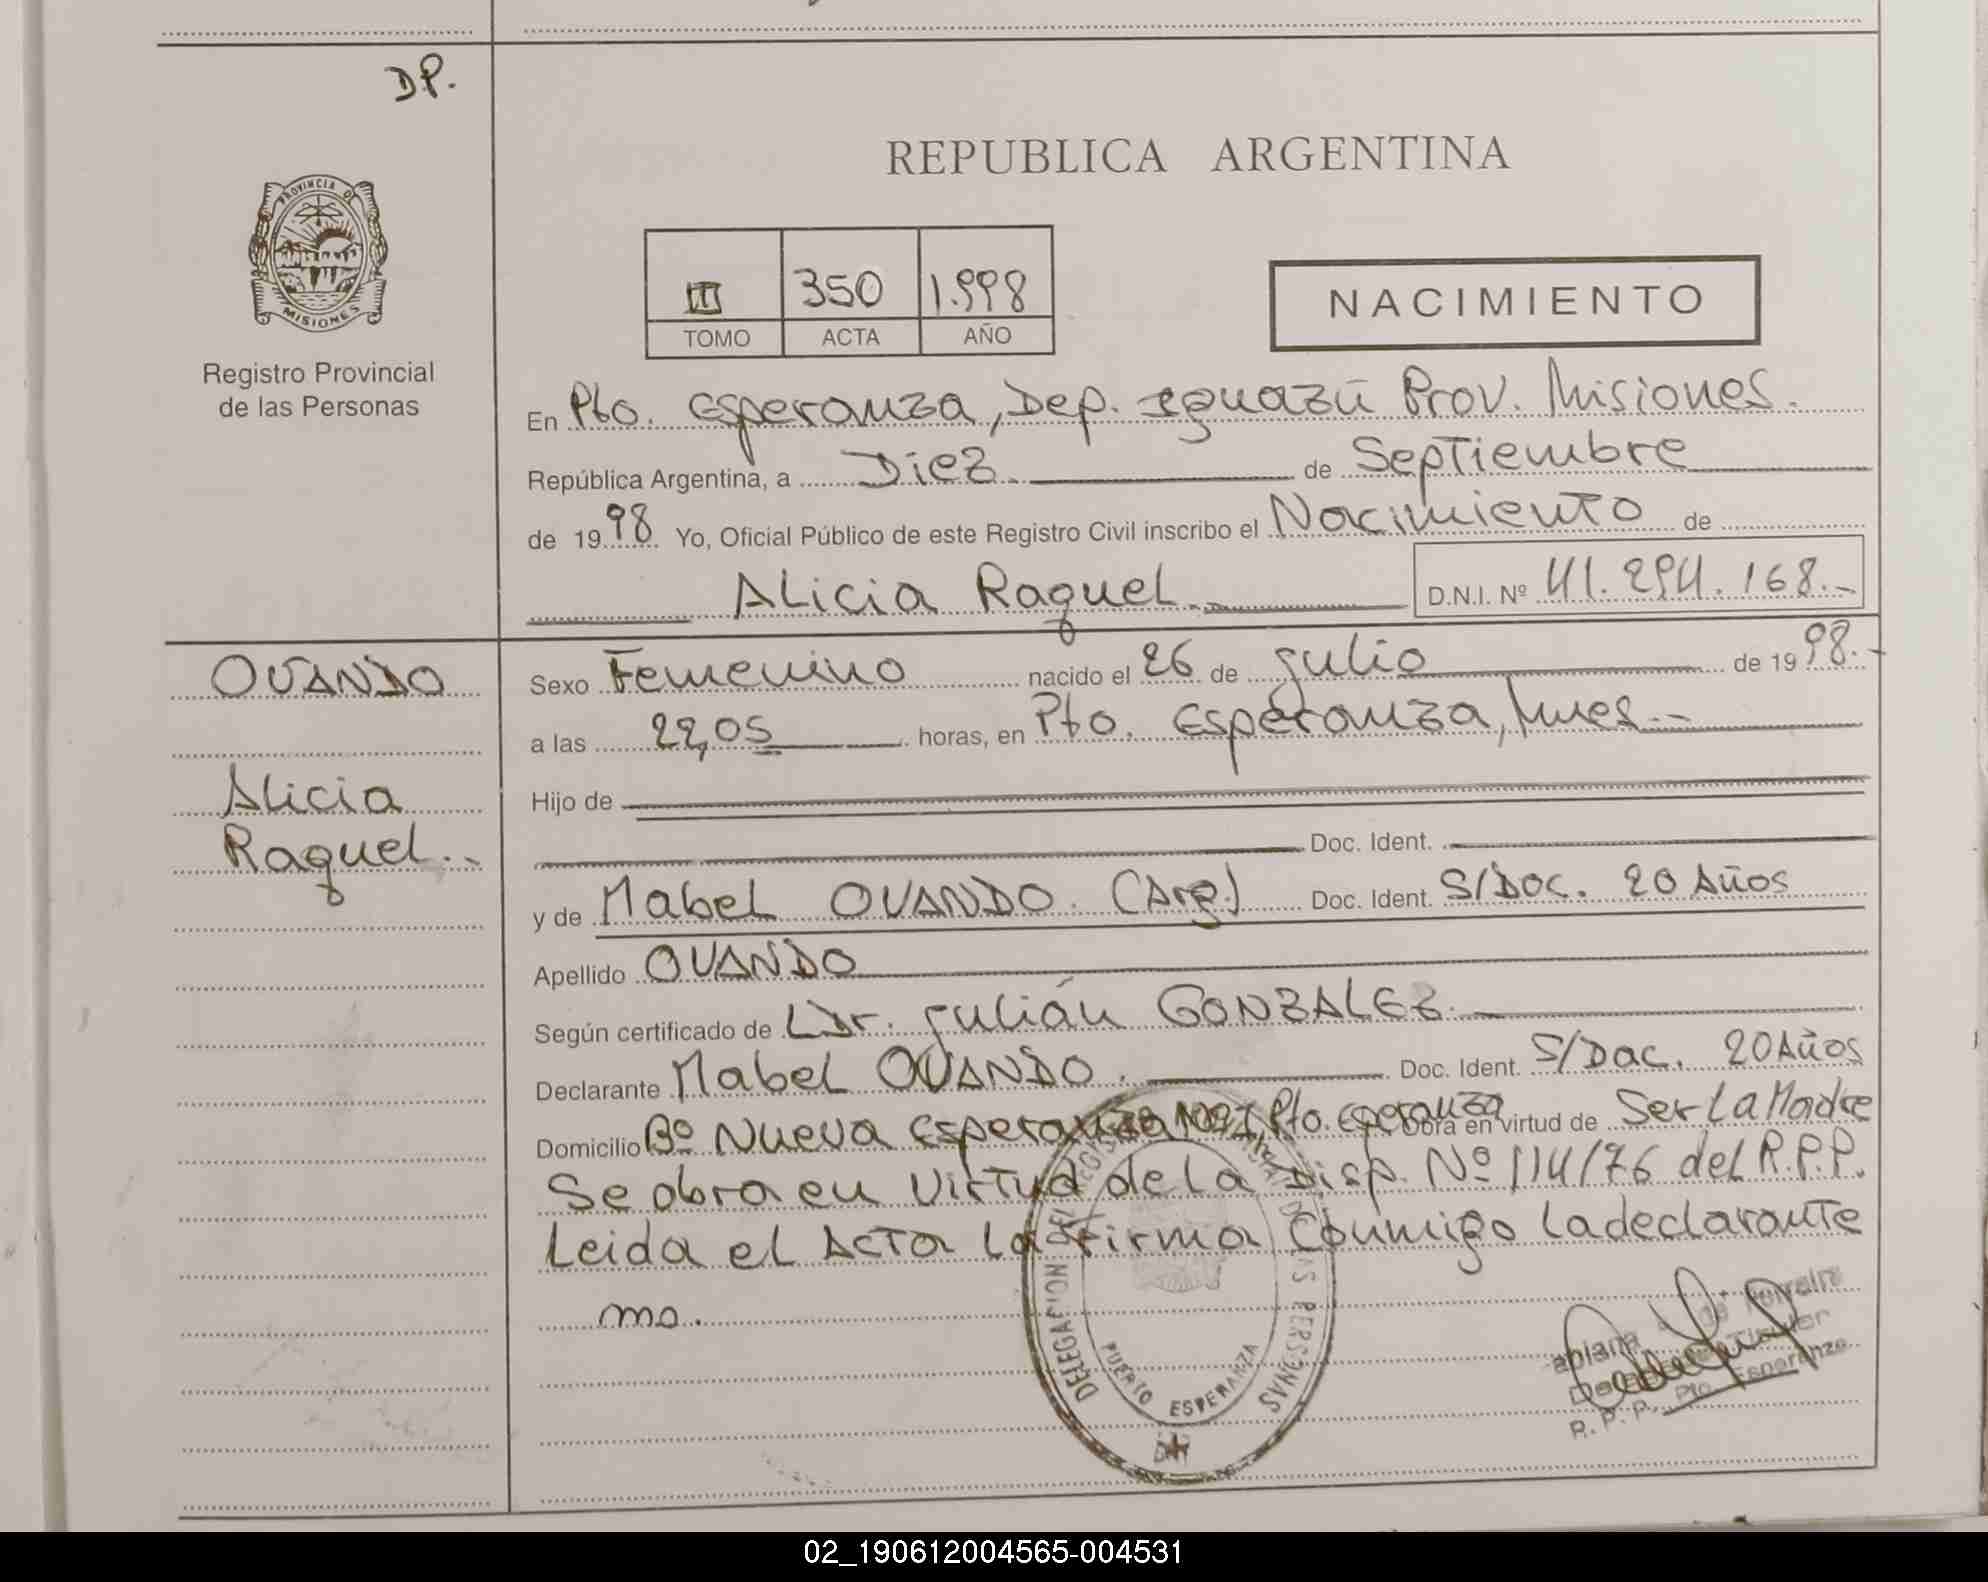 DP.
PROVINCIA DE
MISIONES
Registro Provincial
de las Personas
REPUBLICA ARGENTINA
III 350 1.998
TOMO ACTA AÑO
NACIMIENTO
En Pto. Esperanza, Dep. Iguazú Prov. Misiones.
República Argentina, a Diez de Septiembre
de 1998 Yo, Oficial Público de este Registro Civil inscribo el Nacimiento de
Alicia Raquel D.N.I. Nº 41.294.168.-
OVANDO
Alicia
Raquel.-
Sexo Femenino nacido el 26 de julio de 1998.-
a las 22,05 horas, en Pto. Esperanza, Mnes.-
Hijo de
Doc. Ident.
y de Mabel OVANDO. (Arg.) Doc. Ident. S/Doc. 20 Años
Apellido OVANDO
Según certificado de Dr. Julián GONZALEZ.
Declarante Mabel OVANDO. Doc. Ident. S/Doc. 20 Años
Domicilio Bº Nueva Esperanza Pto. Esperanza Obra en virtud de Ser La Madre
Se obra en Virtud de La Disp. Nº 114/76 del R.P.P.
Leida el Acta La Firma Conmigo La declarante
mo.
DELEGACION DEL REGISTRO DE LAS PERSONAS
PUERTO ESPERANZA
de Ferreira
Titular
R. P. P. Pto. Esperanza
02_190612004565-004531